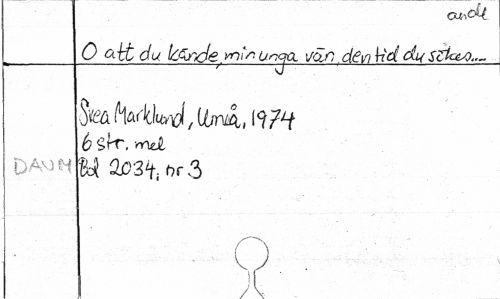 andl
O att du kände, min unga vän, den tid du sökes....
Svea Marklund, Umeå, 1974
6 str. mel
DAUM Bd 2034, nr 3